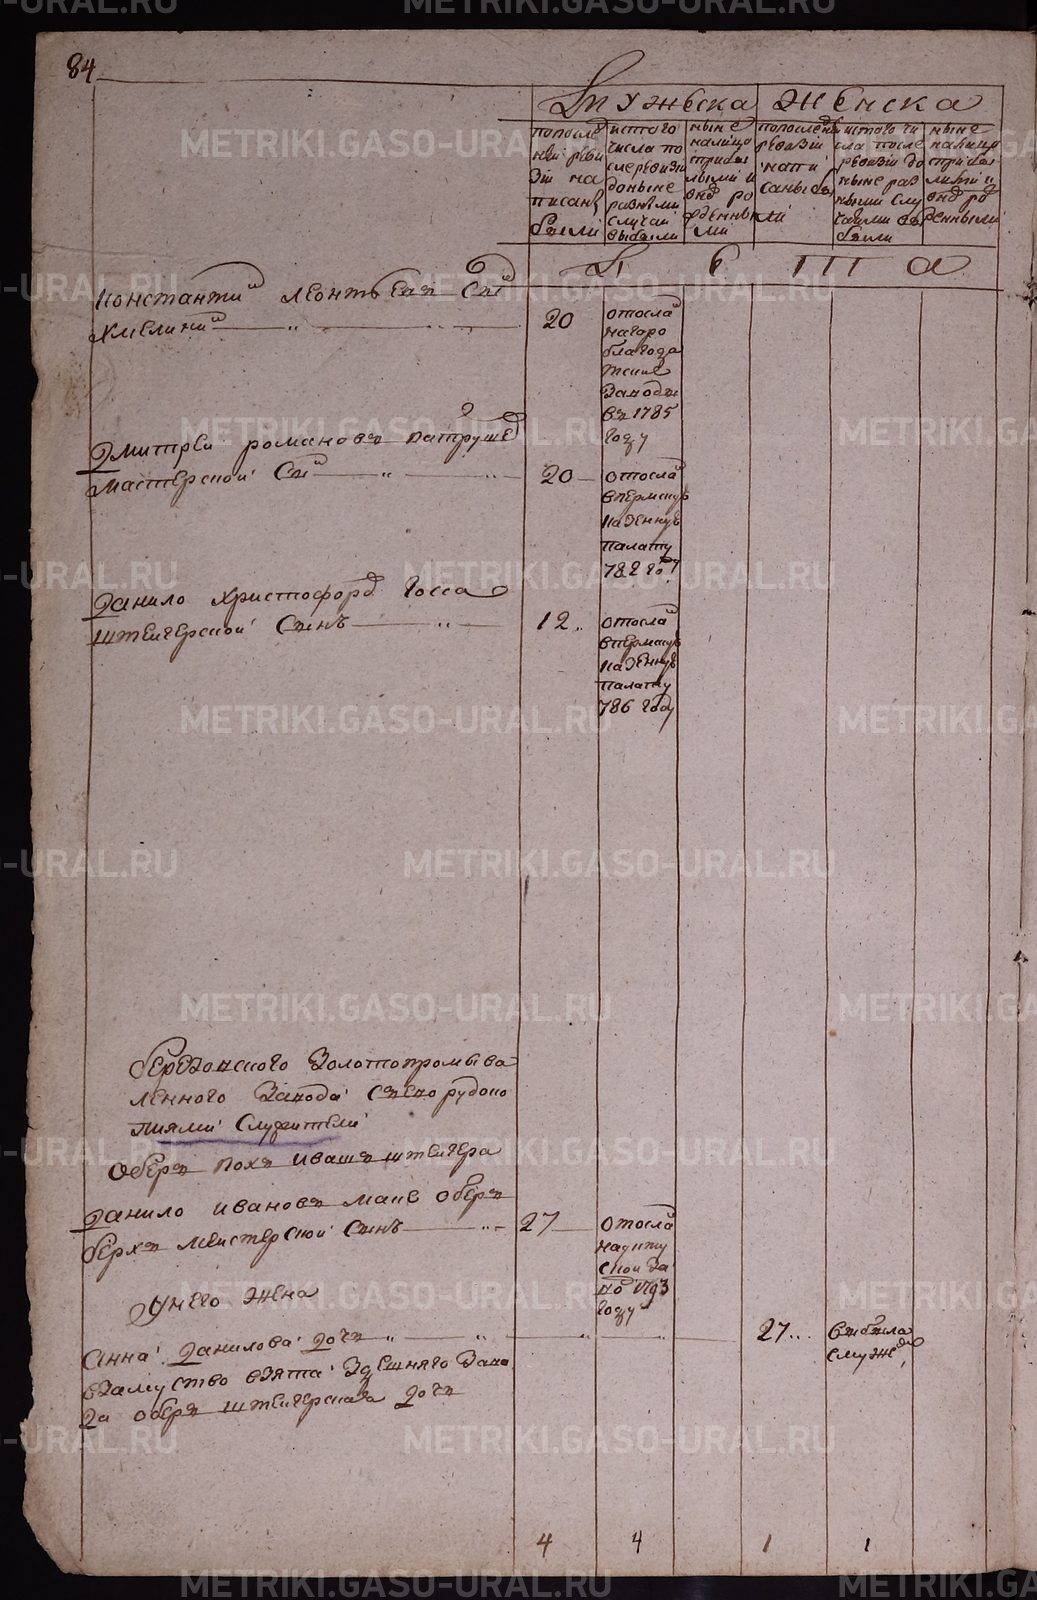 84
Мужеска Женска
попосле
ней реви
зи на
писанѣ
были
истого
числа по
слеревизи
доныне
разными
случаи
выбыли
ныне
налицо
сприбы
лыми и
внд ро
жденны
ми
попоследн
ревизи
напи
саны
истого чи
сла после
ревизи до
ныне раз
ными слу
чаями вы
были
ныне
налицо
сприбы
лыми и
внд рож
денными
Л е т а
Константи Леонтьевъ Сынъ
Хмелини
20
отосла
нагоро
благода
тские
Заводы
въ 1785
году
Дмитрей романовъ патрушев
мастерской Сынъ
20
отосла
впермскую
казенную
палату
782 году
Данило христофоров Госса
штейгерской Сынъ
12
отосла
впермскую
казенную
палату
786 году
березовского Золотопромыва
ленного Завода
Служители
оберъ штейгера
Данило ивановъ маис оберъ
берхъ меистерской Сынъ
27
отосла
1793
году
унего жена
Анна Данилова дочь
27
выбыла
смуже
взамуство взята здешняго Заво
да оберъ штейгерская дочь
4 4 1 1
METRIKI.GASO-URAL.RU